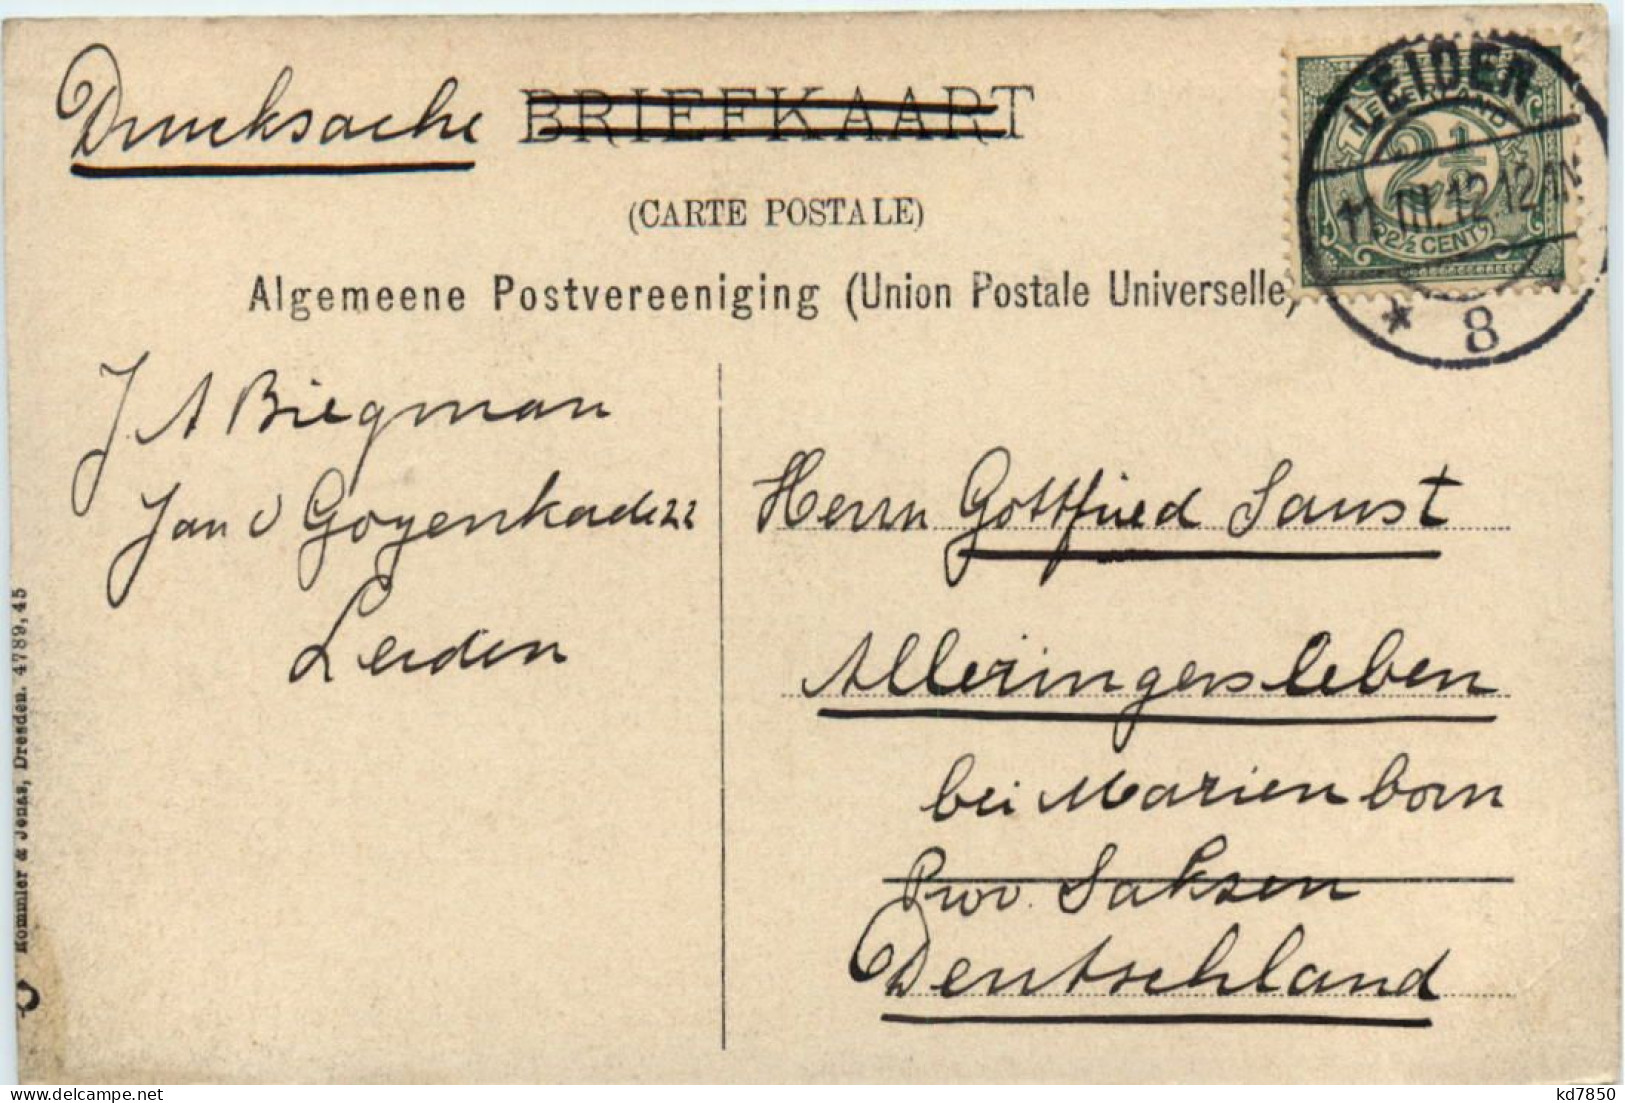 Drucksache BRIEFKAART
(CARTE POSTALE)
Algemeene Postvereeniging (Union Postale Universelle)
LEIDEN
NEDERLAND
2½
(2½ CENT)
11.III.12.12
* 8
J A Biegman
Jan v Goyenkade 22
Leiden
Herrn Gottfried Saust
Alleringersleben
bei Marienborn
Prov. Saksen
Deutschland
Rommler & Jonas, Dresden. 4789,45
kd7850